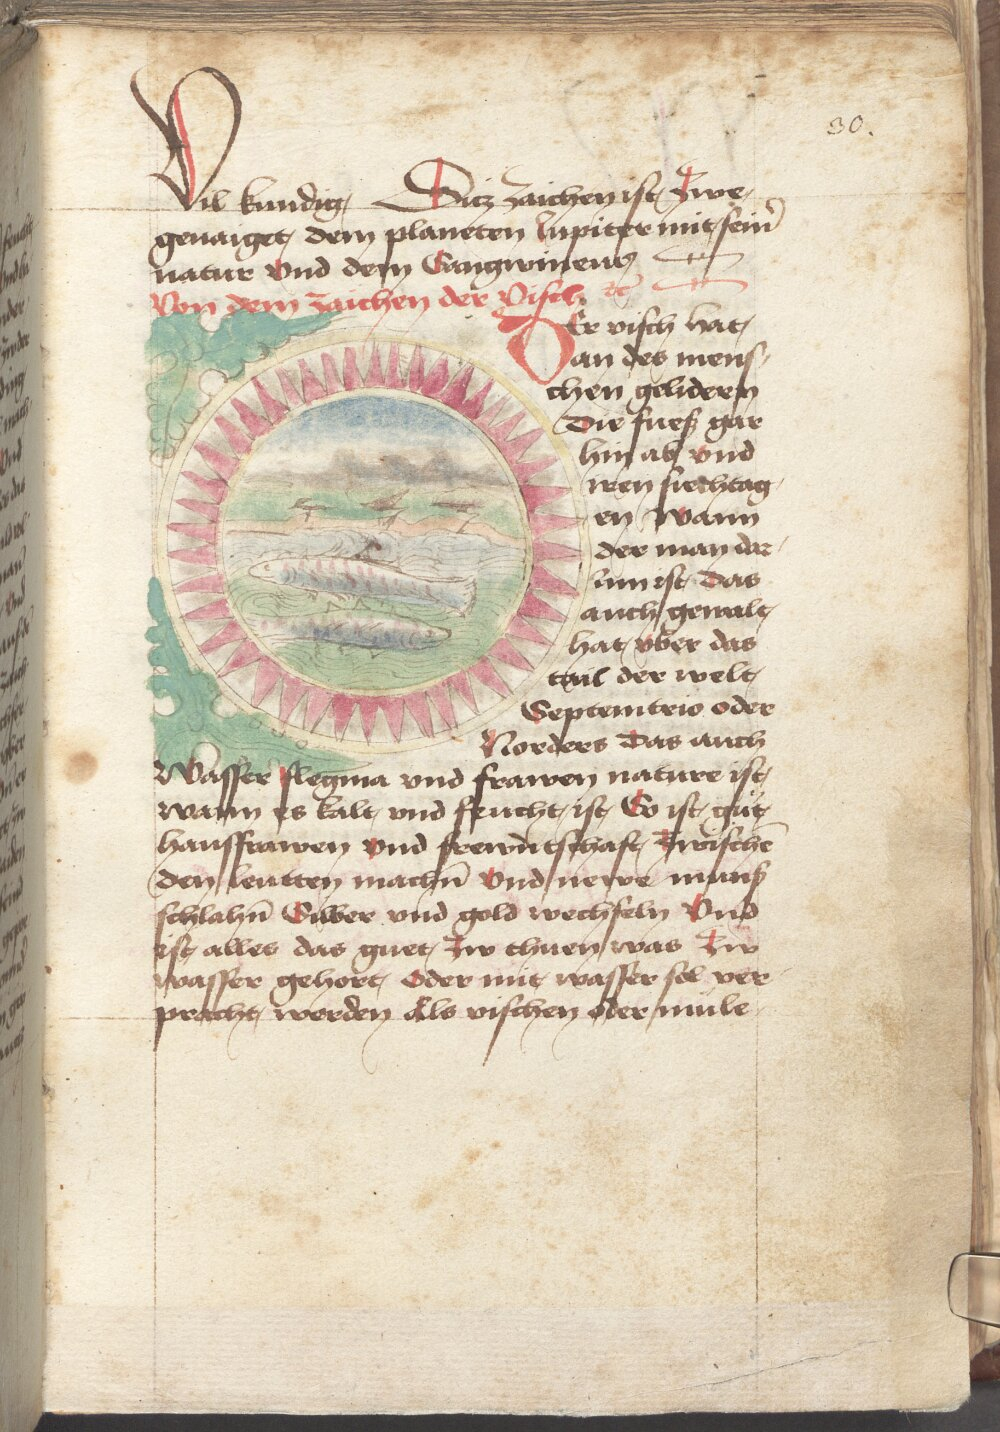 30.
Vil kundig Ditz zaichen ist zwe
genaiget dem planeten Jupiter mit sein̄
natur vnd dem Sangwineus
Von dem zaichen der Visch ꝛc
Der visch hat
an des mens
chen gelidern
Die fues gar
hin ab vnd
iren siechtag
en Wann
der man dar
Inn ist Das
auch gewalt
hat vber das
tail der welt
Septemtrio oder
Norders Das auch
Wasser flegma vnd frawen nature ist
wann es kalt vnd feucht ist So ist gut
hausfrawen vnd frewntschaft zwischē
den leutten machn̄ Vnd newe muns
schlahn̄ Silber vnd gold wechseln Vnd
ist alles das guet zw thuen was zw
wasser gehort Oder mit wasser sol ver
pracht werden Als vischen oder mule